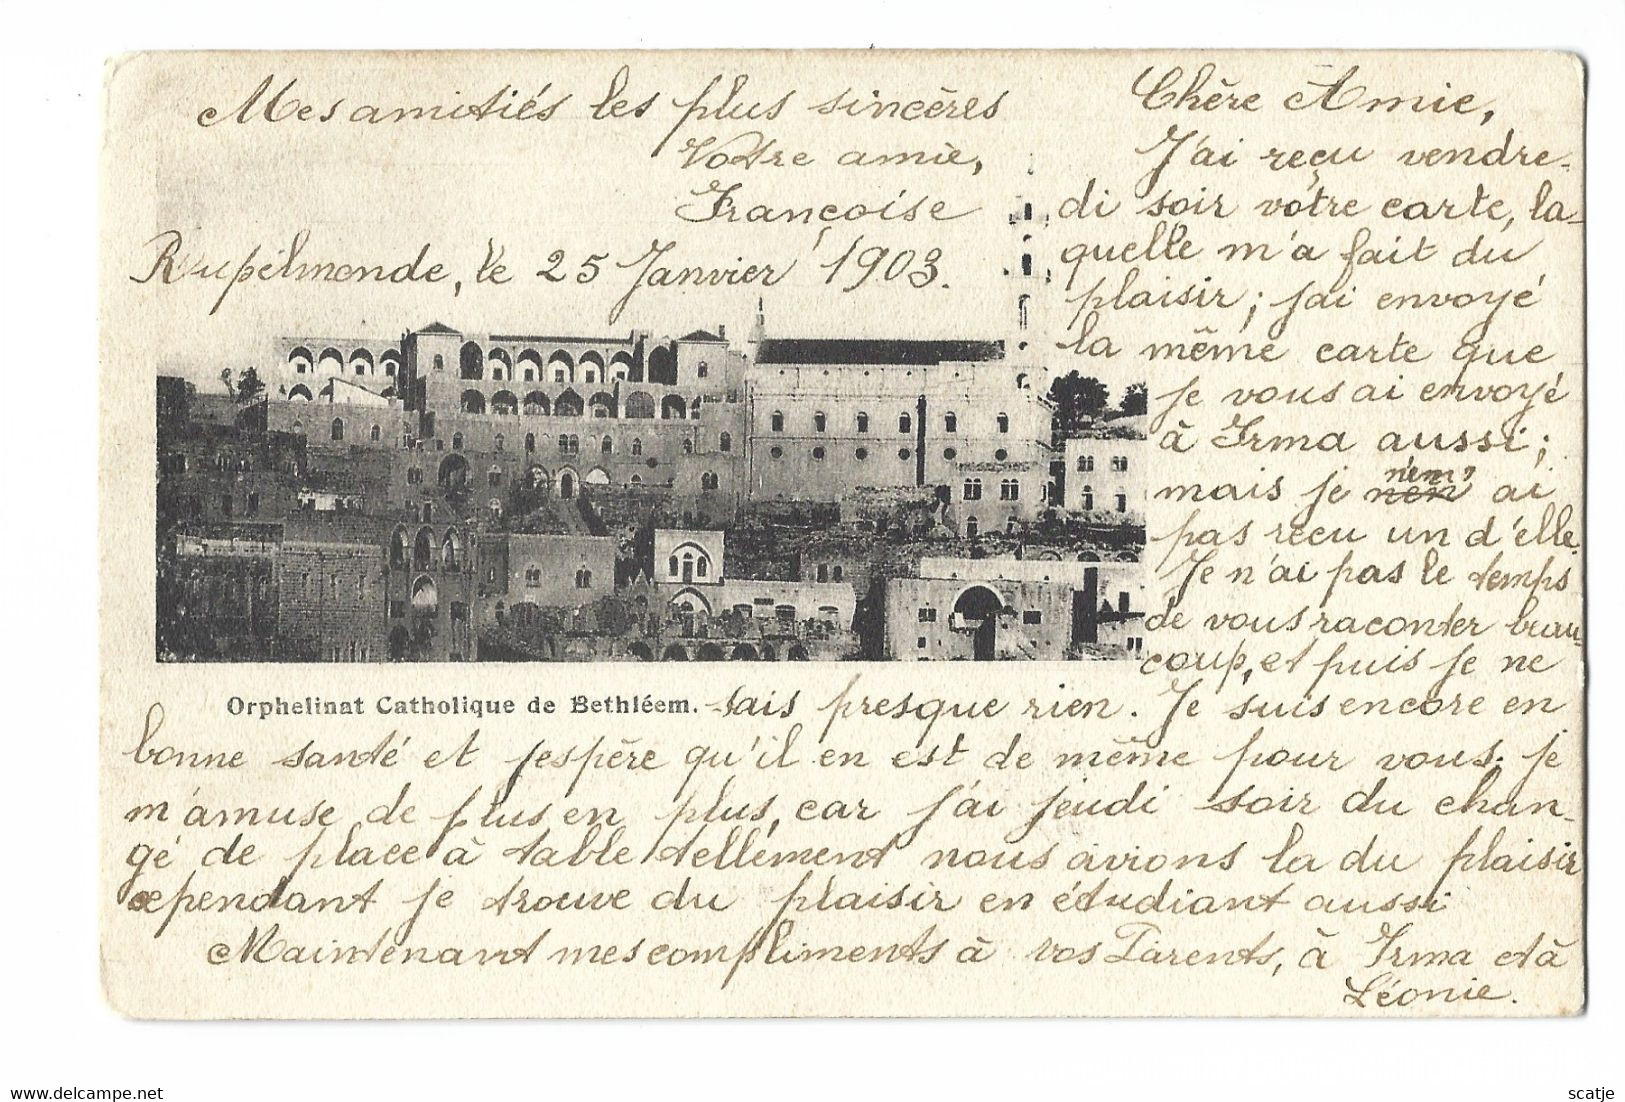 Mes amitiés les plus sincères
Votre amie,
Françoise
Rupelmonde, le 25 Janvier 1903.
Chère Amie,
J'ai reçu vendre-
di soir vôtre carte, la-
quelle m'a fait du
plaisir; j'ai envoyé
la même carte que
je vous ai envoyé
à Irma aussi;
mais je n'em' ai
pas recu un d'elle.
Je n'ai pas le temps
de vous raconter beau-
coup, et puis je ne
Orphelinat Catholique de Bethléem.
sais presque rien. Je suis encore en
bonne santé et j'espère qu'il en est de même pour vous. je
m'amuse de plus en plus, car j'ai jeudi soir du chan-
gé de place à table tellement nous avions la du plaisir
cependant je trouve du plaisir en étudiant aussi
Maintenant mes compliments à vos Parents, à Irma et à
Léonie.
www.delcampe.net
scatje